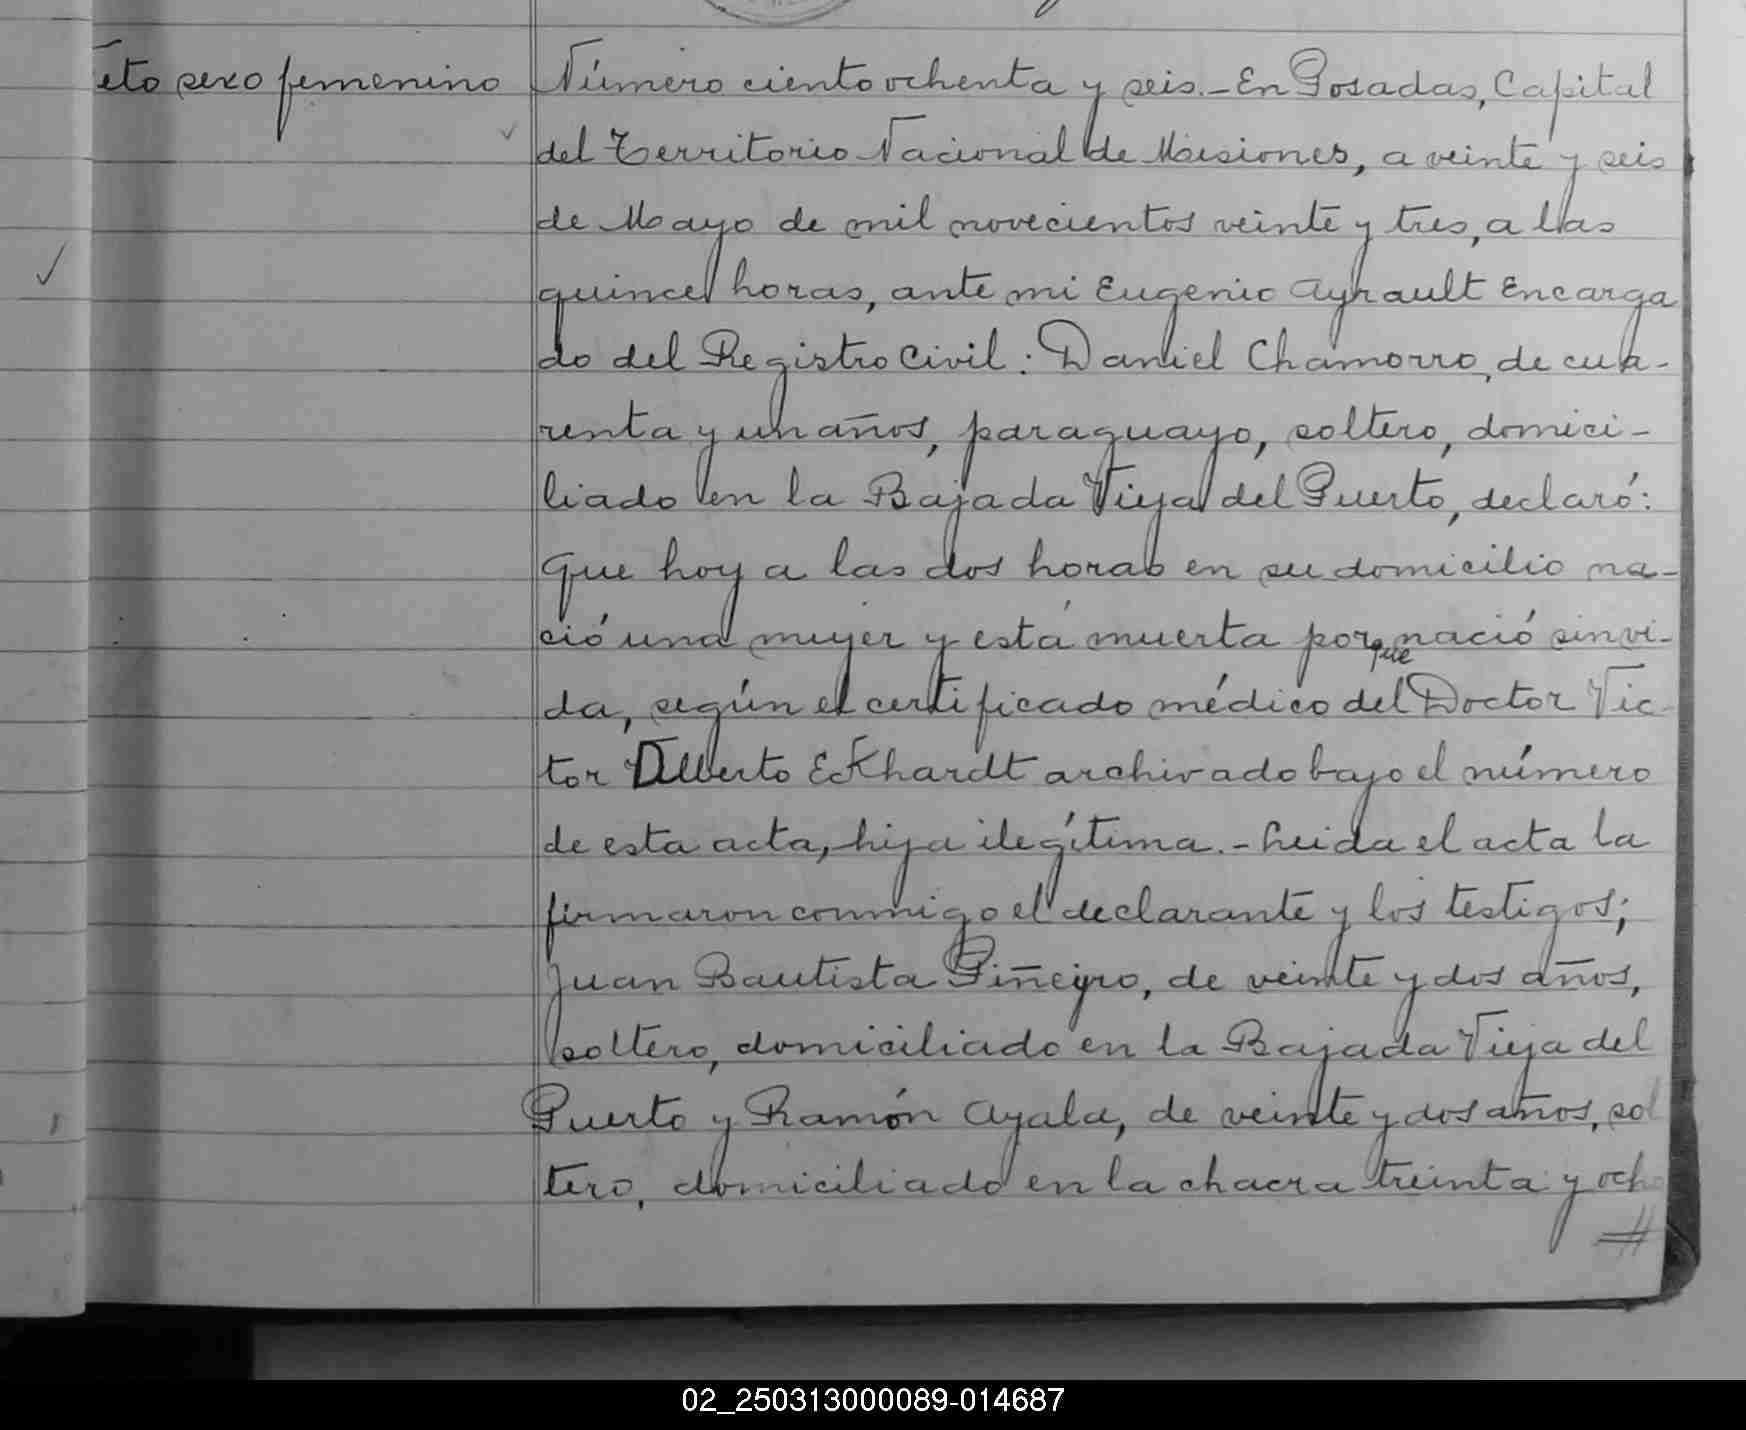 eto sexo femenino
Número ciento ochenta y seis.- En Posadas, Capital
del Territorio Nacional de Misiones, a veinte y seis
de Mayo de mil novecientos veinte y tres, a las
quince horas, ante mi Eugenio Ayrault Encarga
do del Registro Civil: Daniel Chamorro, de cua-
renta y un años, paraguayo, soltero, domici-
liado en la Bajada Vieja del Puerto, declaró:
Que hoy a las dos horas en su domicilio na-
ció una mujer y está muerta porque nació sin vi-
da, según el certificado médico del Doctor Vic-
tor Alberto Eckhardt archivado bajo el número
de esta acta, hija ilegítima.- Leida el acta la
firmaron conmigo el declarante y los testigos;
Juan Bautista Piñeyro, de veinte y dos años,
soltero, domiciliado en la Bajada Vieja del
Puerto y Ramón Ayala, de veinte y dos años, sol
tero, domiciliado en la chacra treinta y ocho
02_250313000089-014687